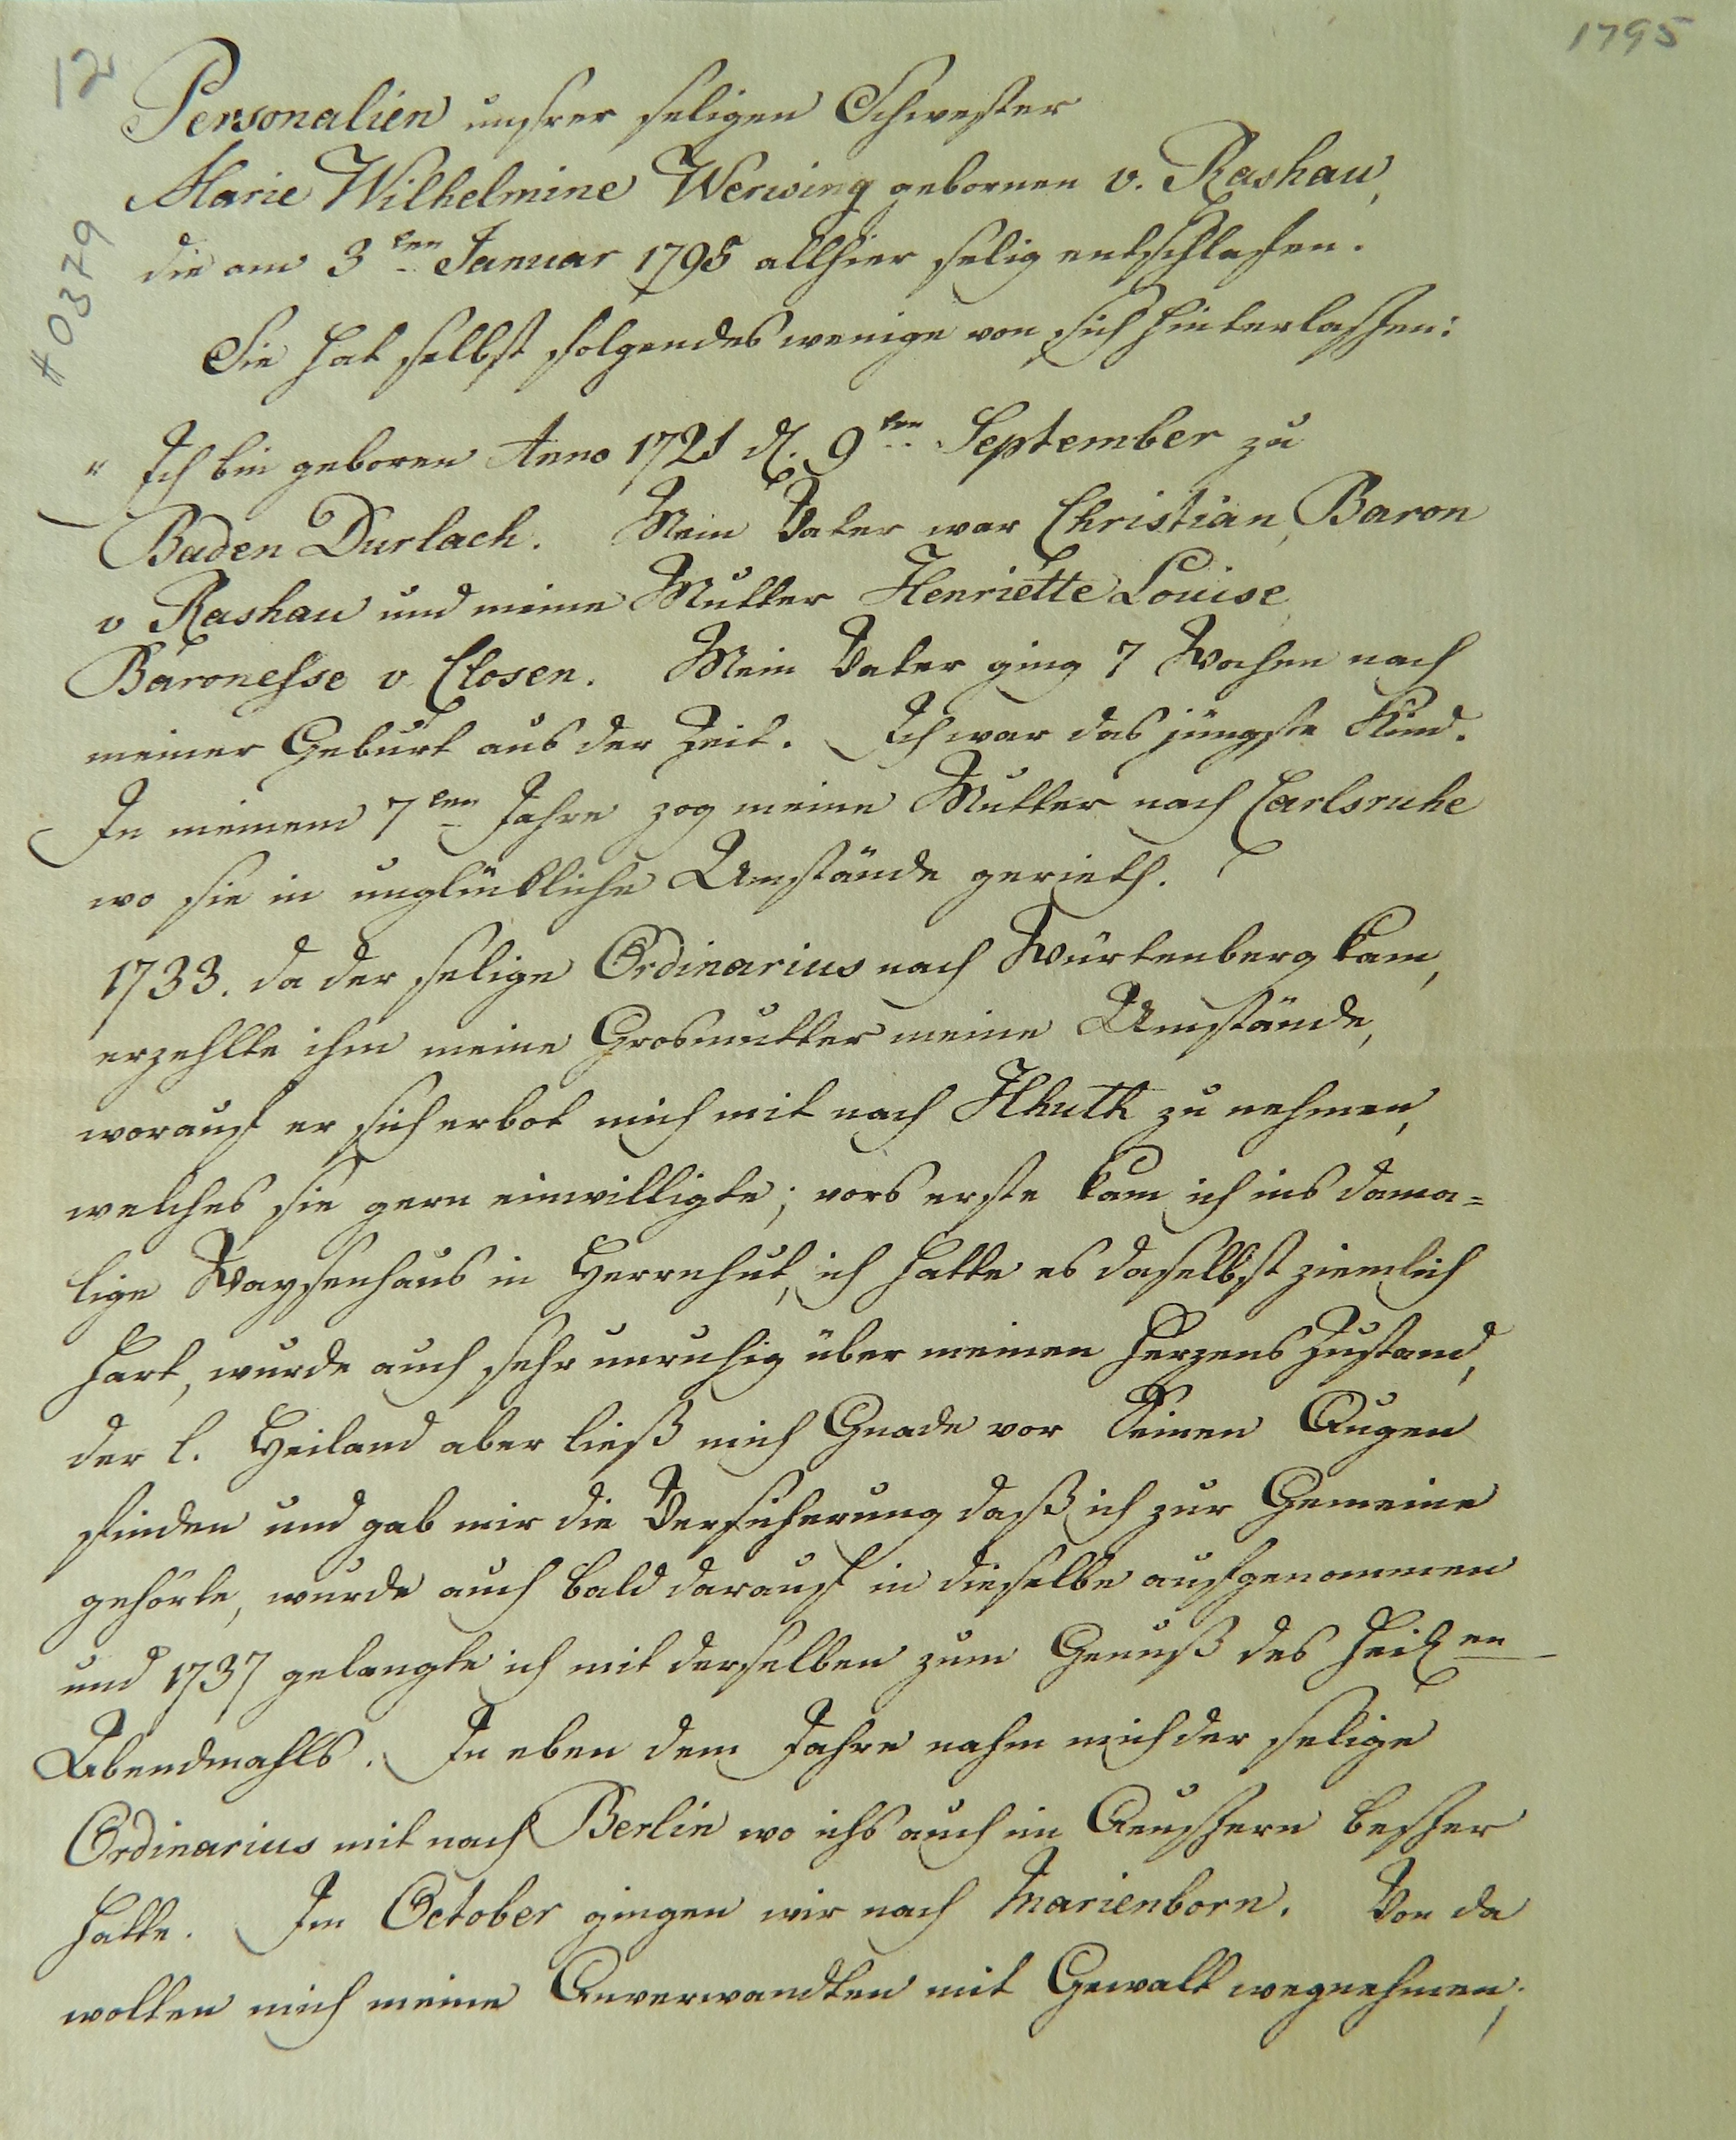 12
1795
# 0379
Personalien unsrer seligen Schwester
Marie Wilhelmine Werwing gebornen v. Rashau,
die am 3ten Januar 1795 allhier selig entschlafen.
Sie hat selbst folgendes wenige von sich hinterlassen:
" Ich bin geboren Anno 1721 d. 9ten September zu
Baden Durlach. Mein Vater war Christian, Baron
v Rashau und meine Mutter Henriette Louise
Baronesse v. Closen. Mein Vater ging 7 Wochen nach
meiner Geburt aus der Zeit. Ich war das jüngste Kind.
In meinem 7ten Jahre zog meine Mutter nach Carlsruhe
wo sie in unglückliche Umstände gerieth.
1733. da der selige Ordinarius nach Würtenberg kam,
erzehlte ihm meine Grosmutter meine Umstände,
worauf er sich erbot mich mit nach Hhuth zu nehmen,
welches sie gern einwilligte; vors erste kam ich ins dama=
lige Waysenhaus in Herrnhut, ich hatte es daselbst ziemlich
hart, wurde auch sehr unruhig über meinen Herzens Zustand,
der l. Heiland aber ließ mich Gnade vor Seinen Augen
finden und gab mir die Versicherung daß ich zur Gemeine
gehörte, wurde auch bald darauf in dieselbe aufgenommen
und 1737 gelangte ich mit derselben zum Genuß des Heilen
Abendmahls. In eben dem Jahre nahm mich der selige
Ordinarius mit nach Berlin wo ichs auch im Aeussern besser
hatte. Im October gingen wir nach Marienborn. Von da
wolten mich meine Anverwandten mit Gewalt wegnehmen;